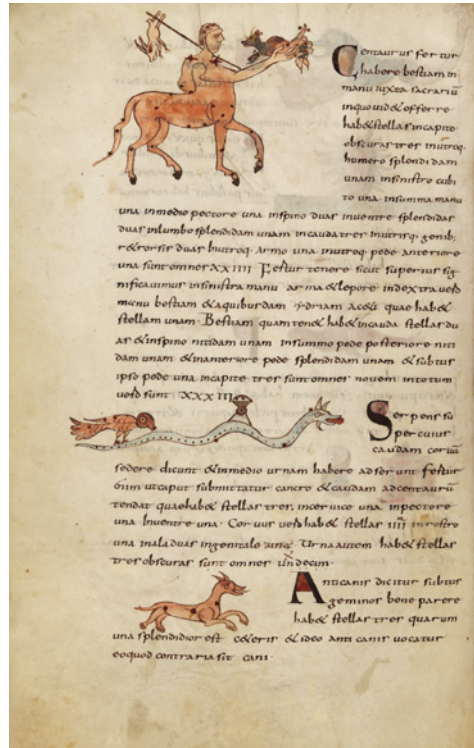 Centaurus fertur
habere bestiam in
manu iuxta sacrariū
inquo uidēt offerre
hab& stellas incapite
obscuras tres inutroq.
humero splendidam
unam insinistro cubi
to una. insumma manu
una inmedio pectore una inspino duas inuentre splendidas
duas inlumbo splendidam unam incauda tres inutrisq. genib;
una sunt omnes XXIIII Fertur tenere sicut superius sig
nificauimus insinistra manu arma & lepore indextra uero
stellam unam. Bestiam quam ten& hab& incauda stellas du
as & inspino nitidam unam insummo pede posteriore niti
dam unam & inanteriore pede splendidam unam & subtus
ipso pede una. incapite tres sunt omnes nouem intotum
uero sunt XXXIII
Serpens su
per cuius
caudam coruū
sedere dicunt & inmedio urnam habere adserunt fertur
enim ut caput submittatur cancro & caudam ad centaurū
tendat quae hab& stellas tres, inceruice una inpectore
una inuentre una. Coruus uero hab& stellas IIII inrostro
una inala duas ingenitalo una. Urna autem hab& stellas
tres obscuras sunt omnes undecim.
Anticanis dicitur subtus
geminos bene parere
hab& stellas tres quarum
una splendidior est ceteris & ideo anticanis uocatur
eoquod contraria sit cani.